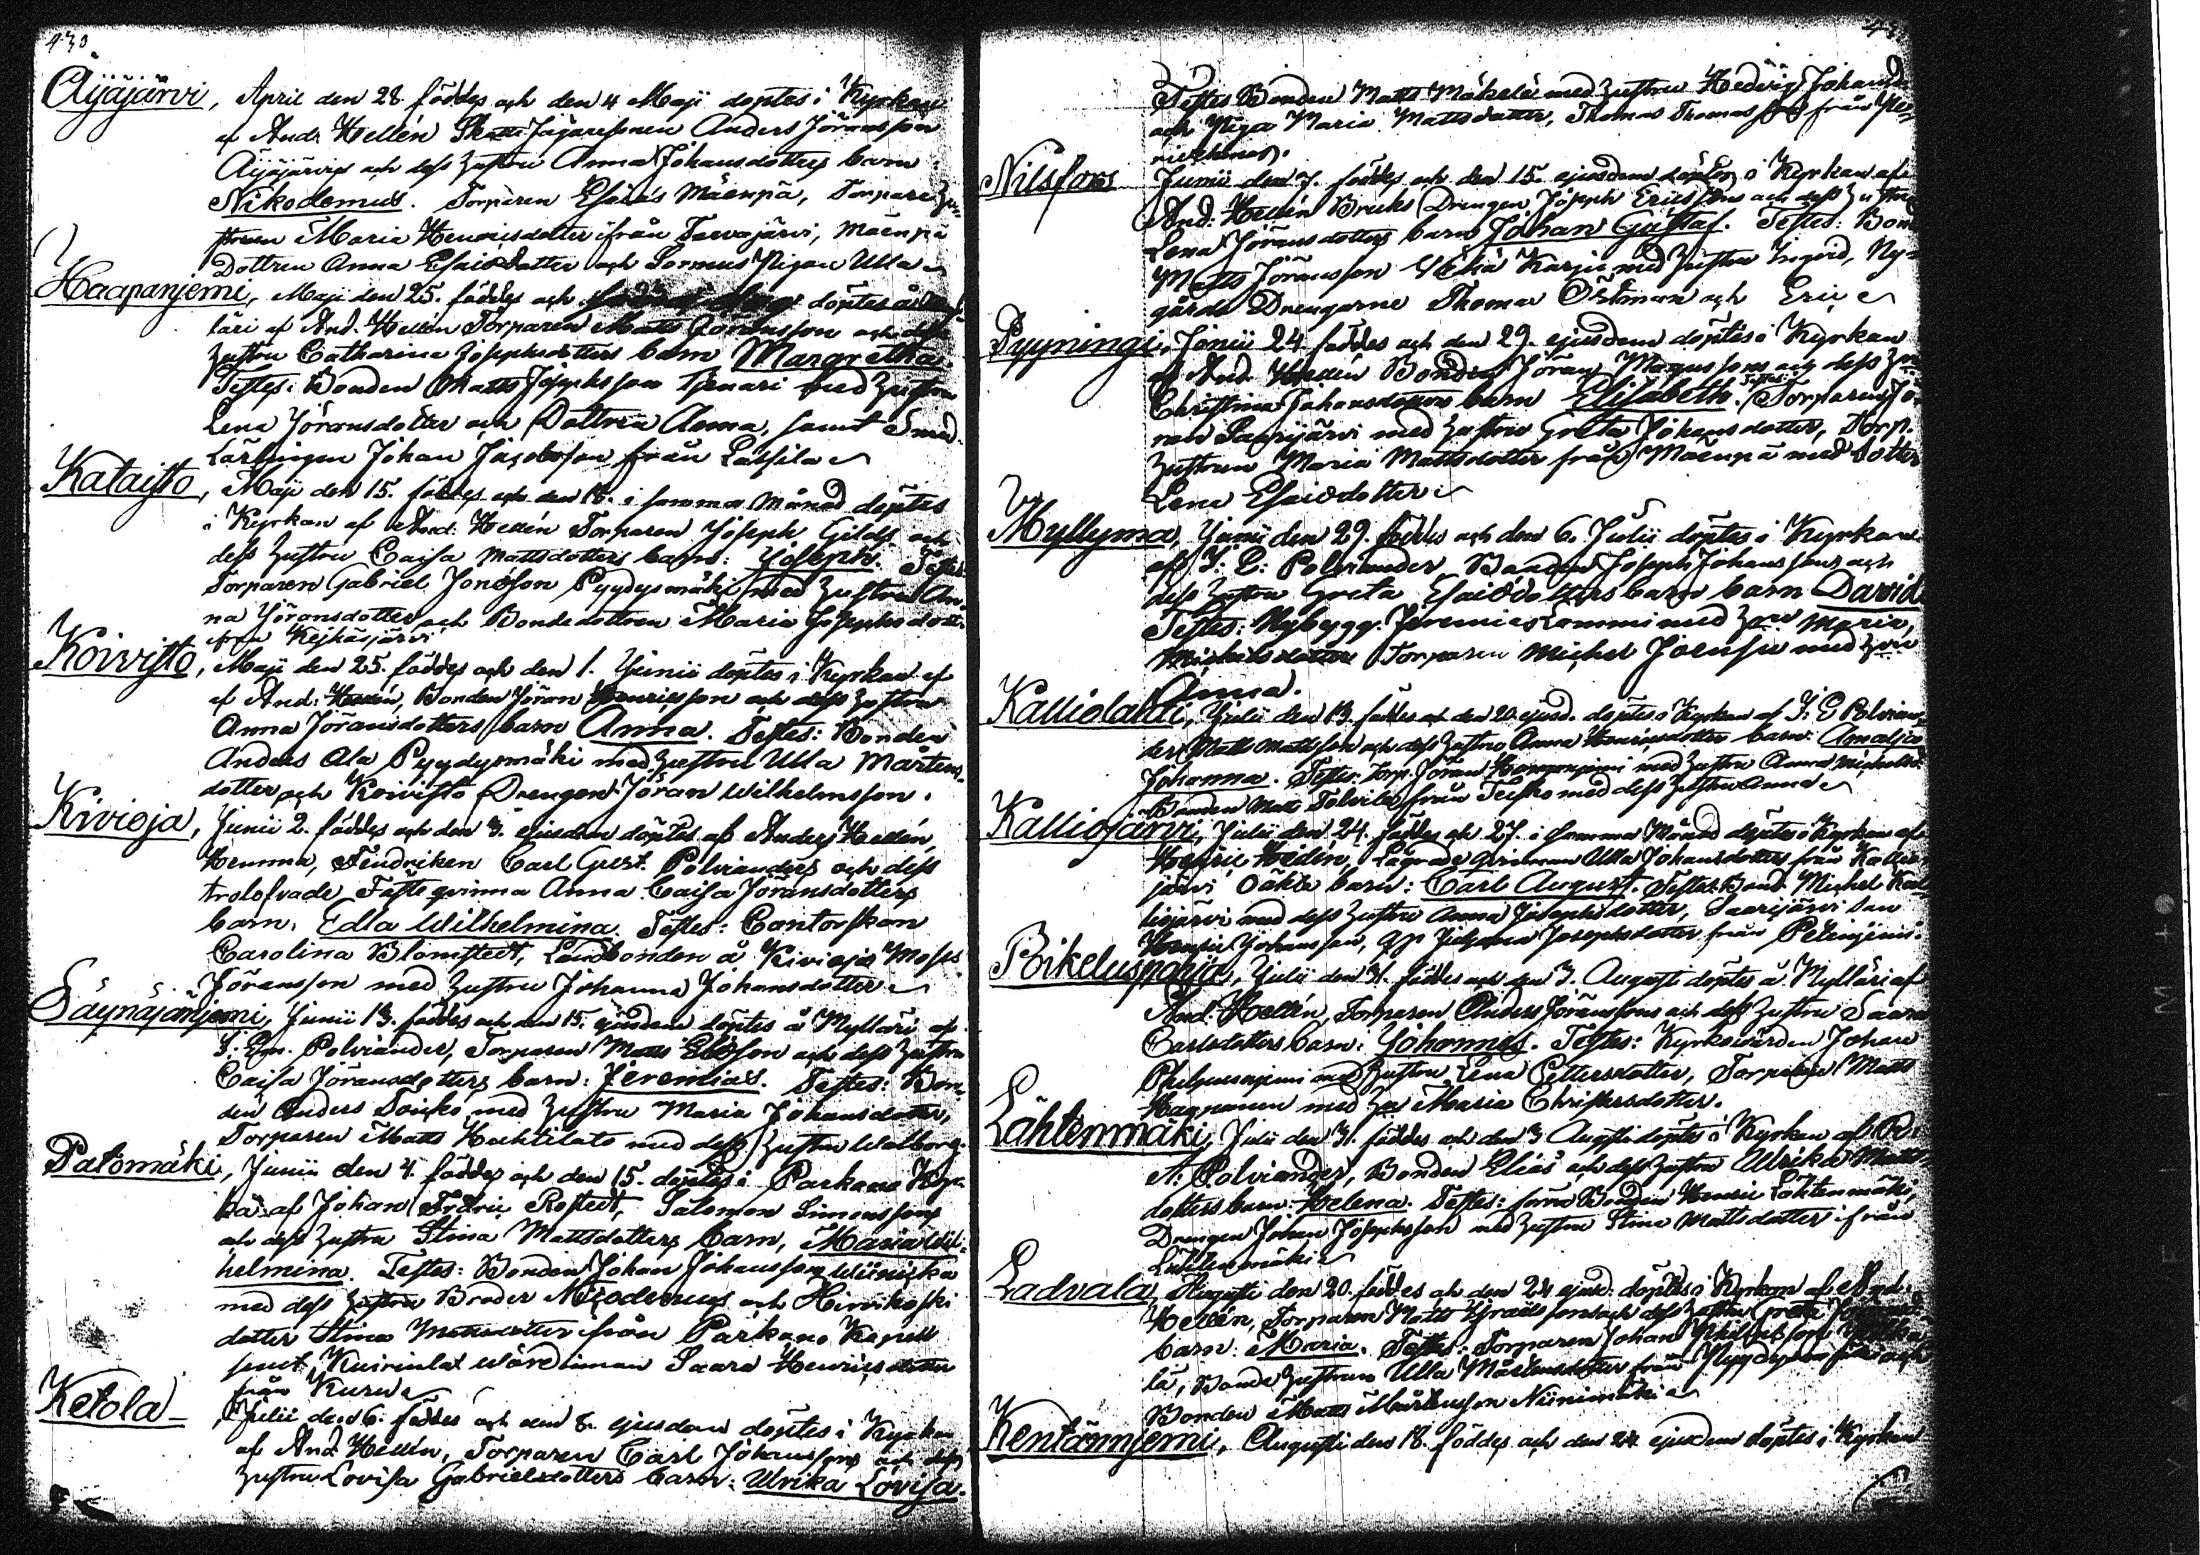 430
Äijäjärvi, April den 28. föddes och den 4 Maji döptes i Kyrkan
af And. Hellén Skatte Jägaresonen Anders Jöransson
Äijäjärvis och dess hustru Anna Johansdotters barn:
Nikodemus. Torparen Esaias Mäenpä, Torpare Hu-
strun Maria Henricsdotter ifrån Tarvajärvi, Mäenpä
Dottren Anna Esaiedotter och Sormus Pigan Ulla
Haapanjemi, Maji den 25. föddes och döptes å
läri af And. Hellén Torparen Matts Göransson och dess
hustru Catharina Josephsdotters barn Margretha.
Testes: Bonden Matts Josephsson med hustru
Lena Jöransdotter och Dottren Anna, samt Smed
Lärlingen Johan Jacobsson från Lassila
Kataisto, Maji den 15. föddes och den 18. i samma månad döptes
i Kyrkan af And. Hellén Torparen Joseph Gilds och
dess hustru Caisa Mattsdotters barn: Joseph. Testes
Torparen Gabriel Jonsson Pyydysmäki med hustru An-
na Jöransdotter och Bondedottren Maria Josephsdott.
från Keihäsjärvi
Koivisto, Maji den 25. föddes och den 1. Junii döptes i Kyrkan af
af And: Hellén, Bonden Jöran Henricsson och dess hustru
Anna Jöransdotters barn Anna. Testes: Bonden
Anders Ala Pyydysmäki med hustru Ulla Mårtens-
dotter och Koivisto Drengen Jöran Wilhelmsson.
Kivioja, Junii 2. föddes och den 3. ejusdem döptes af Anders Hellén,
hemma, Fendriken Carl Gust. Polvianders och dess
trolofvade Fästeqvinna Anna Caisa Jöransdotters
barn, Edla Wilhelmina. Testes: Cantorskan
Carolina Blomstedt, Landbonden å Kivioja Moses
Jöransson med hustru Johanna Johansdotter
Säynäjänjemi, Junii 13. föddes och den 15. ejusdem döptes å Mylläri af
J. Em. Polviander, Torparen Matts Eliesson och dess hustru
Caisa Jöransdotters barn: Jeremias. Testes: Bon-
den Anders Toisko med hustru Maria Johansdotter,
Torparen Matts Huhtilato med dess hustru Walborg.
Patomäki, Junii den 4. föddes och den 15. döptes i Parkano Kyr-
ka af Johan Fredric Rostedt, Salomon Simonssons
och dess hustru Stina Mattsdotters barn, Maria Wil-
helmina. Testes: Bonden Johan Johansson Wiinicka
med dess Broder Nicodemus och Hirvikoski
dotter Stina Mattsdotter ifrån Parkano Kapell
samt Wärdinnan Saara Henricsdotter
från Kuru
Ketola Julii den 6. föddes och den 8. ejusdem döptes i Kyrkan
af And. Hellén, Torparen Carl Johanssons och dess
hustru Lovisa Gabrielsdotters barn: Ulrika Lovisa.
Testes Bonden Matts Mäkelä med hustru Hedvig Johansd.
och Piga Maria Mattsdotter, Thomas Thomasson från
Nilsfors Junii den 7. föddes och den 15. ejusdem döptes i Kyrkan af
And. Hellén Bruks Drengen Joseph Ericssons och dess hustru
Lena Jöransdotters barn Johan Gustaf. Testes: Bond
Matts Jöransson med hustru Ingrid, Ny-
gårds Drengarne Thomas Östman och Eric
Pyyningi, Junii 24. föddes och den 29. ejusdem döptes i Kyrkan
af And. Hellén Bonden Jöran Magnussons och dess hu.
Christina Johansdotters barn Elisabeth. Testes: Torparen Jö-
ran Saarijärvi med hustru Greta Johansdotter, Torp.
hustrun Maria Mattsdotter från Mäenpä med dotter
Lena Esaiedotter
Myllymä, Junii den 29. föddes och den 6. Julii döptes i Kyrkan
af J: E: Polviander Bonden Joseph Johanssons och
dess hustru Greta Esaiedotters barn barn David
Testes: Nybygg. Jeremias Lammi med hru Maria,
Michelsdotter Torparen Michel med hru
Anna.
Kalliolahti, Julii den 13. föddes och den 20. ejusd. döptes i Kyrkan af J: E Polvian-
der Matts Mattsson och dess hustru Anna Henricsdotter barn: Amalia
Johanna. Testes: Torp. Jöran med hustru Anna Michelsd.
Bonden Matts Tolvila från Teisko med dess hustru Anna
Kalliojärvi, Julii den 24. föddes och 27. i samma Månad döptes i Kyrkan af
Henric Hedén, Lägrade qvinnan Ulla Johansdotters från Kallio-
järvi oäkta barn: Carl August. Testes: Bond. Michel Kal-
liojärvi med dess hustru Anna Josephsdotter, Saarijärvi Son
Henric Johansson, Josephsdotter från Petenjemi
Pikeluspohja, Julii den 31. föddes och den 3. Augusti döptes å Mylläri af
And. Hellén, Torparen Anders Jöranssons och dess hustru Saara
Carlsdotters barn: Johannes. Testes: Kyrkowärden Johan
med hustru Lena Pettersdotter, Torparen Matts
Haapanen med hu Maria Christersdotter.
Lähtenmäki, Julii den 31. föddes och den 3 Augusti döptes i Kyrkan af R.
A: Polviander, Bonden Elias och dess hustru Ulrika Matts-
dotters barn: Helena. Testes: förra Bonden Henric Lähtenmäki,
Drengen Johan Josephsson med hustru Stina Mattsdotter ifrån
Lähtenmäki
Ladvala, Augusti den 20. föddes och den 24 ejusd. döptes i Kyrkan af And.
Hellén, Torparen Matts Israelssons och dess hustru Greta
barn: Maria. Testes: Torparen Johan
la, Bonde hustrun Ulla Mårtensdotter från Pyydysmäki och
Bonden Matts Mårtensson Niinimäki
Kentännjemi, Augusti den 18. föddes och den 24 ejusdem döptes i Kyrkan